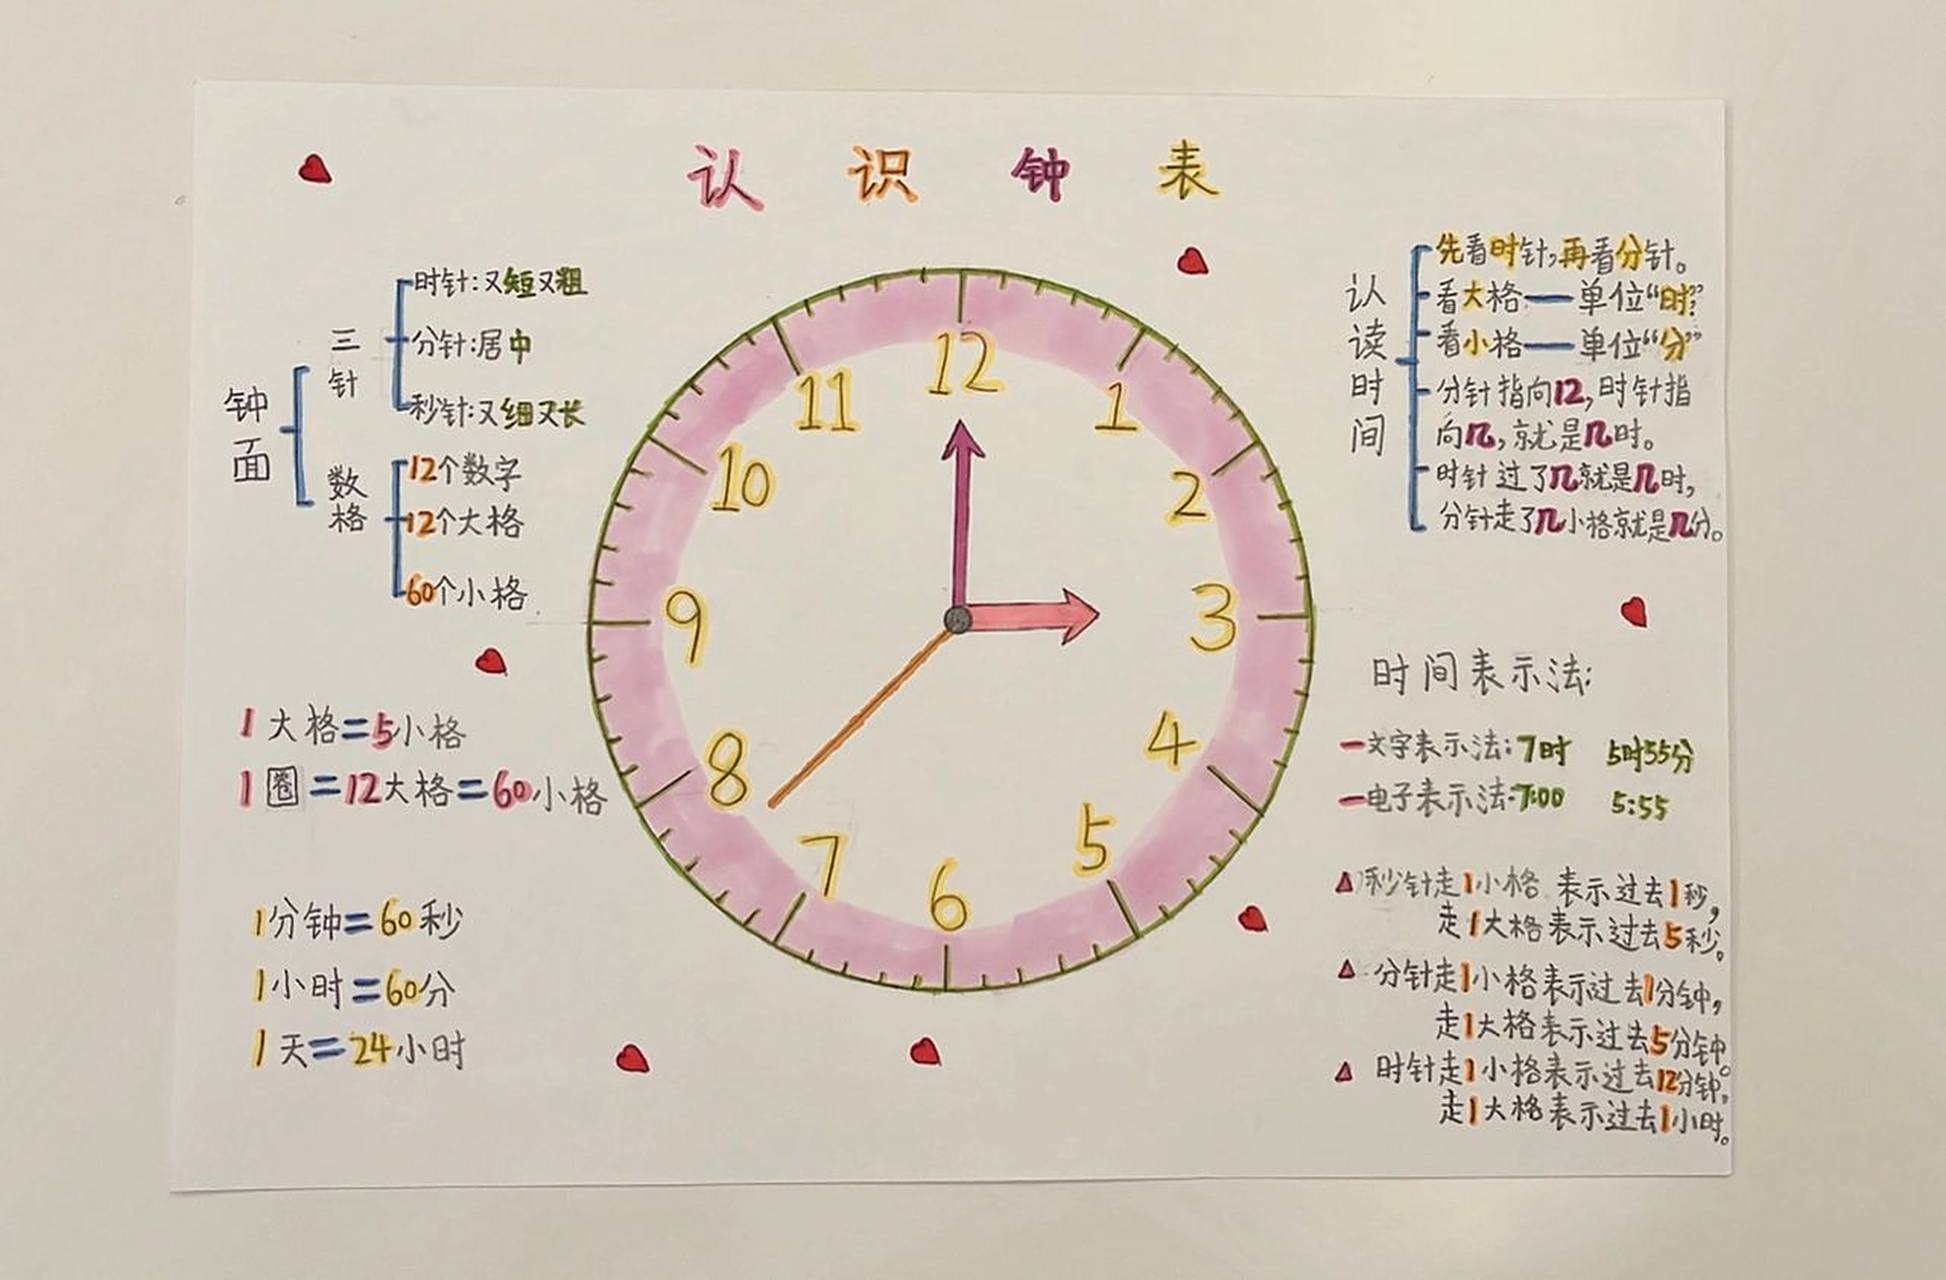 认识钟表
钟面
三针
时针:又短又粗
分针:居中
秒针:又细又长
数格
12个数字
12个大格
60个小格
1大格=5小格
1圈=12大格=60小格
1分钟=60秒
1小时=60分
1天=24小时
12
1
2
3
4
5
6
7
8
9
10
11
认读时间
先看时针,再看分针。
看大格——单位“时”
看小格——单位“分”
分针指向12,时针指
向几,就是几时。
时针过了几就是几时,
分针走了几小格就是几分。
时间表示法:
文字表示法:7时 5时55分
电子表示法:7:00 5:55
秒针走1小格 表示过去1秒,
走1大格表示过去5秒。
分针走1小格表示过去1分钟,
走1大格表示过去5分钟。
时针走1小格表示过去12分钟。
走1大格表示过去1小时。